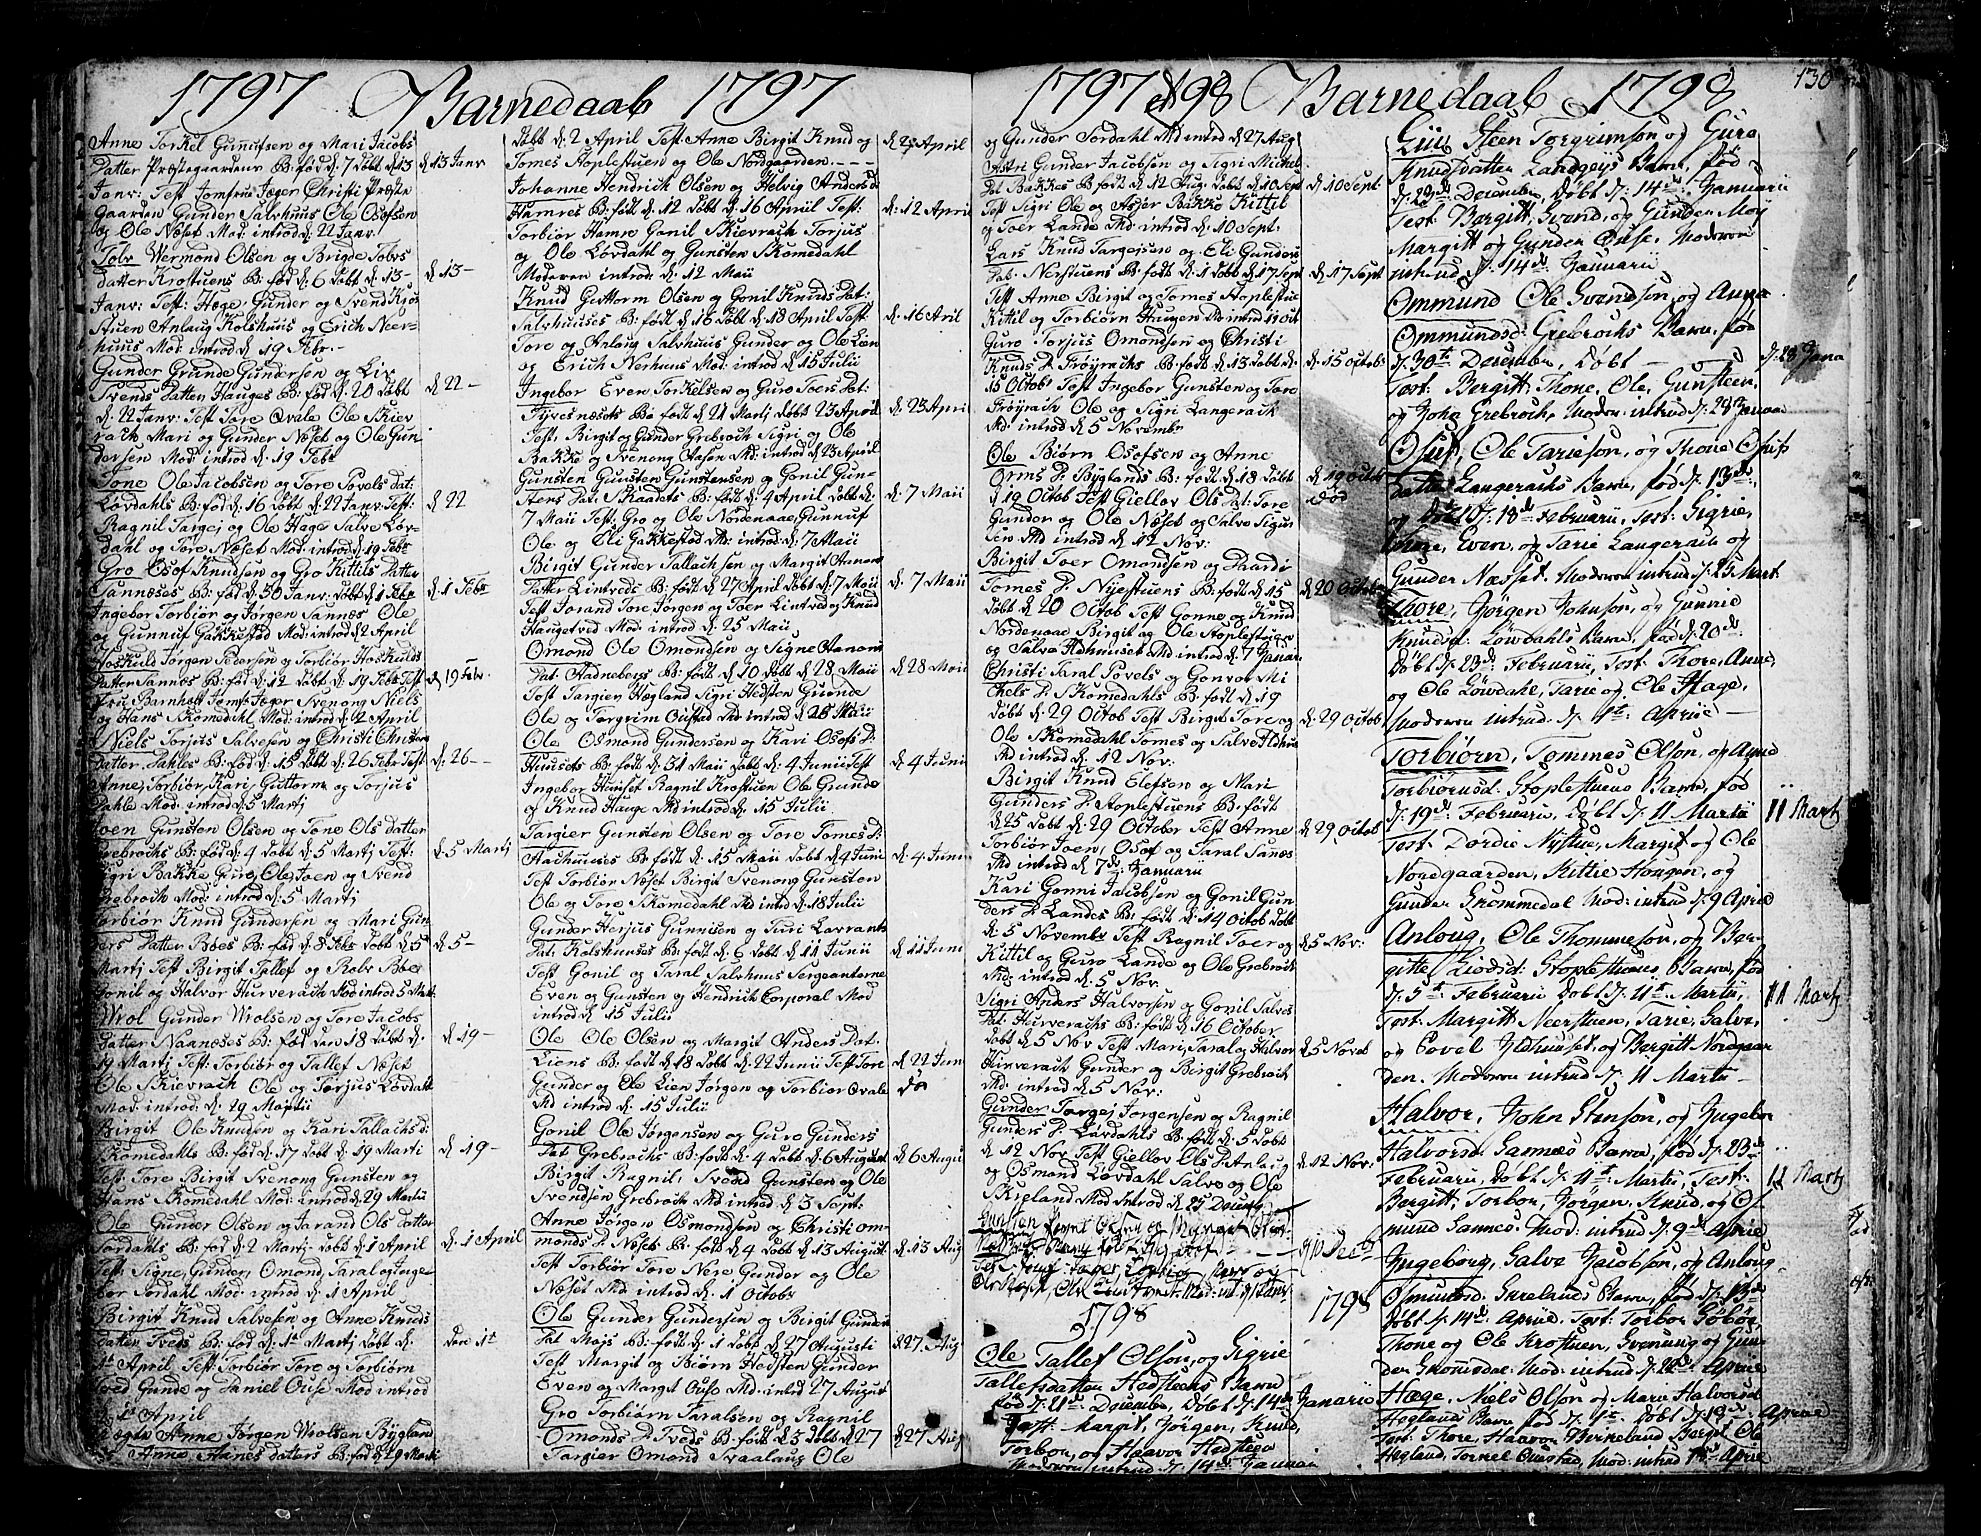 1797 Barnedaab 1797
Anne Torkel Gunnitsen og Mari Jacobs
Datter Præstegaardens B: fød d: 7 døbt d: 13 d: 13 Janv
Janv: Test Jomfrue Jæger Christi Præste
Gaarden Gunder Salvhuus Ole Osofsen
og Ole Næset Mod: introd d: 22 Janv:
Tolv Wermond Olsen og Brigde Tolvs
datter Krostuens B: fød d: 6 døbt d: 13- d: 13-
Janv: Test: Hæge, Gunder og Svend Kros
stuen Anlaug Kolshuus og Erich Neer-
huus Mod: introd d: 19 Febr.-
Gunder Grunde Gundersen og Liv
Svends Datter Hauges B: fød d: 20 døbt d: 22-
d: 22 Janv: Test Tore Qvale Ole Skiev
rach Mari og Gunder Næset og Ole Gun
dersen Mod: introd d: 19 Febr
Tone Ole Jacobsen og Tore Povels dat:
Løvdahls B: fød d: 16 døbt d: 22 Janv: Test: d: 22
Ragnil Targej og Ole Hage Salve Løv-
dahl og Tore Næset Mod: introd d: 19 Febr
Gro Osof Knudsen og Gro Kittils Datter
Sannæses B: fød d: 30 Janv: døbt d: 1 Febr d: 1 Febr
Ingebor Torbiør og Jørgen Sannæs Ole
og Gunnuf Gakkestød Mod: introd d: 2 April
Hoskuld Jørgen Pedersen og Torbiør Hoskulds
Datter Sannæs B: fød d: 12 døbt d: 19 Febr Test d: 19 Febr.
Fru Barnholt Jomf: Jæger Svenong Niels
og Hans Skomedahl Mod: introd d: 2 April
Niels Torjus Salvesen og Christi Christens
Datter Dahles B: fød d: 15 døbt d: 26 Febr Test d: 26-
Anne, Torbiør, Kari, Guttorm og Torjus
Dahle Mod: introd d: 5 Martj
Joen Gunsten Olsen og Tone Ols datter
Grebrochs B: fød d: 4 døbt d: 5 Martj Test: d: 5 Martj
Sigri Bakke Guro, Ole, Joen og Svend
Grebroch Mod: introd d: 5 Martj
Torbiør Knud Gundersen og Mari Gun
ders Datter Bøes B: fød d: 8 Febr døbt d: 5 d: 5-
Martj Test Birgit Tallef og Rolv Bøe
Gonil og Halvor Hurverach Mod introd 5 Mart
Wrol Gunder Wrolsen og Tore Jacobs
Datter Naanæses B: fød den 18 døbt d: d: 19-
19 Martj Test: Torbiør og Tallef Næset
Ole Skievrach Ole og Torjus Løvdahl
Mod: introd: d: 29 Martii
Birgit Ole Knudsen og Kari Tallachs d:
Skomedahls B: fød d: 17 døbt d: 19 Marti d: 19-
Test Tore Birgit Svenong Gunsten og
Hans Skomedahl Mod: introd d: 29 Martii
Ole Gunder Olsen og Jarand Ols datter
Jordahls B: fød d: 2 Martj døbt d: 1 April d: 1 April
Test: Signe, Gunder, Omond, Taral og Inge-
bor Jordahl Mod: introd d: 1 April
Birgit Knud Salvesen og Anne Knuds
Datter Tveds B: fød d: 1t Martj døbt d: den 1t
1t April Test: Torbiør Tore og Torbiørn
Tved Gunde og Daniel Ouse Mod introd
d: 1t April
Anne Jørgen Wrolsen Bygland
Anne Hanes datters B: fød d: 29 Marti
døbt d: 2 April Test: Anne Birgit Knud og d: 2 April
Tomes Stoplestuen og Ole Nordgaarden.----
Johanne Hendrich Olsen og Helvig Anders d:
Hamres B: født d: 12 døbt d: 16 April Test: d: 12 April
Torbiør Hamre Gonil Skievrach Torjus
og Ole Løvdahl og Gunsten Skomedahl
Moderen introd d: 12 Maii
Knud Guttorm Olsen og Gonil Knuds Dat:
Salvhuuses B: født d: 16 døbt d: 18 April Test: d: 16 April
Tore og Anlaug Salvhuus Gunder og Ole Lien
og Erich Nerhuus Mod: introd d: 15 Julii
Ingebor Even Torkelsen og Guro Toers Dat:
Tyvesnæsets Ba født d: 21 Martj døbt 23 April d: 23 April
Test: Birgit og Gunder Grebroch Sigri og Ole
Bakke og Svenong Aasen Md: introd d: 23 April
Gunsten Gunsten Gunstensen og Gonil Gun-
stens Dat: Skandets B: født d: 4 April døbt d: d: 7 Maii
7 Maii Test: Gro og Ole Nordenaae Gunnuf
Ole og Eli Gakkestad Md: introd d: 7 Maii
Birgit Gunder Tallachsen og Margit Aanons
Datter Lintveds B: født d: 27 April døbt d: 7 Maii d: 7 Maii
Test Jorand Tore Jørgen og Toer Lintved og Knud
Haugetvid Mod: introd d: 25 Maii
Omond Ole Omondsen og Signe Aanons
Dat: Hadnebergs B: født d: 10 døbt d: 28 Maii d: 28 Maii
Test Targier Hægland Sigri Hedsten Grunde
Ole og Torgrim Oustad Md: introd d: 28 Maii
Ole Osmond Gundersen og Kari Osofs d:
Huusets B: født d: 31 Maii døbt d: 4 Junii Test d: 4 Junii
Ingebor Huuset Ragnil Krostuen Ole Grunde
og Knud Hauge Md introd d: 15 Julii
Targier Gunsten Olsen og Tore Tomes d:
Aachuuses B: født d: 15 Maii døbt d: 4 Junii d: 4 Junii
Test Torbiør Næset Birgit Svenong Gunsten
Ole og Tore Skomedahl Md introd d: 18 Julii
Gunder Herjus Gunnisen og Turi Lavrants
Dat: Kolshuuses B: født d: 6 døbt d: 11 Junii d: 11 Juni
Test Gonil og Taral Salvhuus Sergeanterne
Even og Gunsten og Hendrich Corporal Mod
introd d: 15 Julii
Ole Ole Olsen og Margit Anders Dat:
Liens B: født d: 18 døbt d: 22 Junii Test Tore d: 22 Juni
Gunder og Ole Lien Jørgen og Torbiør Qvale dø
Md introd d: 15 Julii
Gonil Ole Jørgensen og Guro Gunders
Dat Grebrochs B: født d: 4 døbt d: 6 August d: 6 Augu
Birgit Ragnil, Svend Gunsten og Ole
Svendsen Grebroch Md introd d: 3 Sept:
Anne Jørgen Osmondsen og Christi Om-
monds d: Næsets B: født d: 4 døbt d: 13 August d: 13 Aug
Test Torbiør Tore Nere Gunder og Ole
Næset Md: introd d: 1 Octobr
Ole Gunder Gundersen og Birgit Gunders
Dat Mojs B: født d: 1 døbt d: 27 Augusti d: 27 Aug
Test Margit og Biørn Hedsten Gunder
Even og Margit Ouse Md: introd 27 August
Gro Torbiørn Taralsen og Ragnil
Omonds d: Tveds B: født d: 3 døbt d: 27 d: 27 Aug
Targier Omond Svaalaug Ole
1797 & 98 Barnedaab 1798 136
og Gunder Jordahl Md introd d: 27 Aug
Astri Gunder Jacobsen og Sigri Michel
Dat Bakkes B: født d: 12 Aug: døbt d: 10 Sept d: 10 Sept
Test Sigri Ole og Asjer Bakke Kittil
og Toer Lande Md: introd d: 10 Sept.
Lars Knud Targejsen og Eli Gunders
Dat: Nerstuens B: født d: 1 døbt d: 17 Sept d: 17 Sept
Test Anne Birgit og Tomes Stoplestue
Kittil og Torbiørn Haugen Md introd 1 Oct
Guro Torjus Omondsen og Christi
Knuds d: Frøyrachs B: født d: 13 døbt d: d: 15 octobr
15 Octobr Test Ingebor Gunsten og Tore
Frøyrach Ole og Sigri Langerach
Md introd d: 5 Novembr
Ole Biørn Osofsen og Anne
Orms d: Byglands B: født d: 18 døbt d: 19 octob
d: 19 Octob Test Giellov Ols Dat: Tore død
Gunder og Ole Næset og Salve Sigur
sen Md introd d: 12 Nov:
Birgit Toer Omondsen og Daardi
Tomes d: Nyestuens B: født d: 15 d: 20 Octobr
døbt d: 20 Octob Test Gonne og Knud
Nordenaae Birgit og Ole Stoplestuen
og Salve Ildhuuset Md introd d: 7 Januar
Christi Taral Povels og Gonvor Mi
chels d: Skomedahls B: født d: 19
døbt d: 29 Octob Test Birgit Tore og d: 29 Octob
Ole Skomedahl Tomes og Salve Ildhuu
Md introd d: 12 Nov:
Birgit Knud Elefsen og Mari
Gunders d: Stoplestuens B: født
d: 25 døbt d: 29 October Test Anne d: 29 Octob
Torbiør Joen, Osof og Taral Sannæs
Md introd d: 7de Januarii
Kari Gonni Jacobsen og Gonil Gun
ders d: Landes B: født d: 14 Octob døbt
d: 5 Novembr Test Ragnil Toer og d: 5 Nov:
Kittil og Guro Lande og Ole Grebroch
Md: introd d: 5 Nov:
Sigri Anders Halvorsen og Gonil Salves
Dat: Hurverachs B: født d: 16 October
døbt d: 5 Nov Test Mari, Taral og Halvor d: 5 Noveb
Hurverach Gunder og Birgit Grebroch
Md: introd d: 5 Nov:
Gunder Targej Jorgensen og Ragnil
Gunders d: Løvdahls B: født d: 5 døbt
d: 12 Nov Test Giellov Ols d: Anlaug d: 12 Nov:
og Osmond Løvdahl Salve og Ole
Skipland Mod introd d: 25 Decembr
1798 1798
Ole Tallef Olson, og Sigrie
Tallefsdatter Hedsteens Barn
fød d: 21de December, Døbt d: 14de Januarii
Test: Margit, Jørgen, Knud,
Torbor, og Haavor Hedsteen
Moderen introd d: 14de Januar
Liv, Steen Torgrimson, og Guro
Knudsdatter Landgeys Barn, fød
d: 23de December, Døbt d: 14de Januarii
Test: Bergitt Svend, og Gunder Moy
Margitt og Gunder Ouse. Moderen
introd d: 14de Januarii
Ommund Ole Svendson, og Anna
Ommundsd: Grebrochs Barn, fød
d: 30te December, Døbt - d: 28 Janu
Test: Bergitt, Thone, Ole, Gunsteen,
og John Grebroch, Moder introd d: 28 Januar
Osuf, Ole Tarieson, og Thone Osufs
datter Langerachs Barn, fød d: 13de,
og Døbt d: 18de Februarii, Test: Sigrie,
Thore, Even, og Tarie Langerach og
Gunder Næsset. Moderen introd d: 25 Mart.
Thore, Jørgen Johnson, og Gunnie
Knudsd: Løwdahls Barn, fød d: 20de
døbt d: 23de Februarii, Test: Thore, Anne,
og Ole Løwdahl, Tarie og Ole Hage,
Moderen introd d: 1te Aprile
Torbiørn, Tommes Olson, og Anne
Torbiørnsd: Stoplestuens Barn, fød
d: 19de Februarii, Døbt d: 11 Martii 11 Marty
Test: Dordie Nystue, Margit og Ole
Noregaarden, Kittil Hougen, og
Gunder Skommedal Mod: introd d: 9 Aprile
Anloug, Ole Thommeson, og Ber-
gitte Livdsd: Stoplestuens Barn, fød
d: 5te Februarii Døbt d: 11te Martii, 11 Marty
Test: Margitt Neerstuen, Tarie, Salve,
og Povel Ildhuuset og Bergitt Noregaar
den. Moderen introd d: 11 Martii
Halvor, John Stenson, og Ingebor
Halvorsd: Sannæs Barn, fød d: 23de
Februarii, Døbt d: 11te Martii, Test: 11 Marty
Bergitt, Torbor, Jørgen, Knud, og Os-
mund Sannes. Mod: introd d: 9de Aprile
Ingeborg, Salve Jacobson, og Anloug
Osmundsd: Lurelands Barn, fød d: 13de
døbt d: 14de Aprile, Test: Torbor,
Thone og Ole Krostuen, Svenung og Gun-
der Skomedal. Mod: introd d: 22de Aprile
Hæge, Niels Olson, og Mari Halvorsd
Heglands Barn fød d: 1te Døbt d: 18de Aprile
Test: Thore, Haavor Birkeland Bergit Ole
Hegland, Torkel Oustad, Mod: introd 18de Aprile